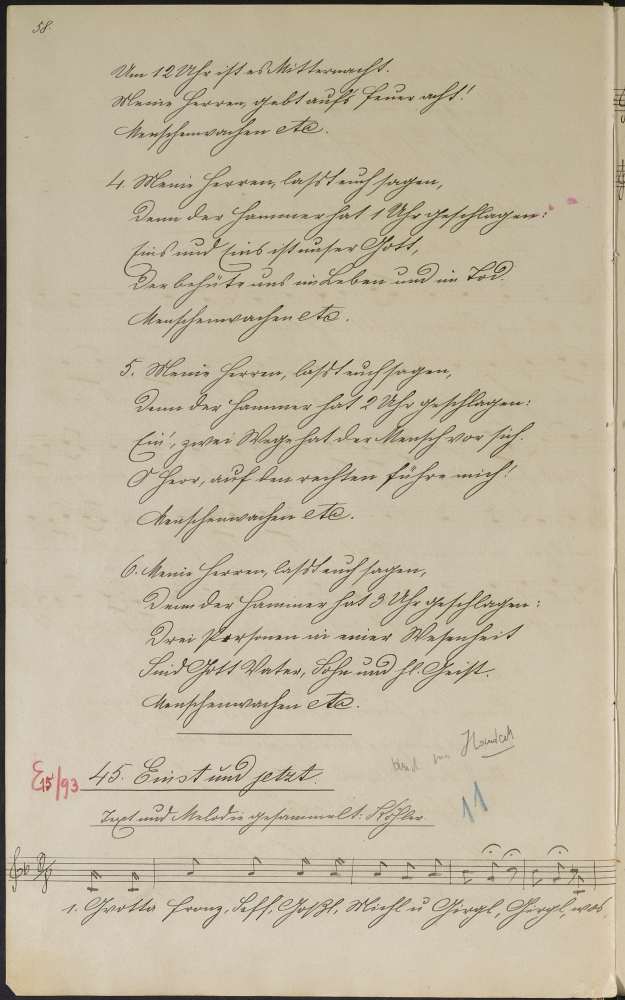 58.
Um 12 Uhr ist es Mitternacht.
Meine Herren, gebt aufs Feuer acht!
Menschenwachen etc.
4. Meine Herren, lasst euch sagen,
Denn der Hammer hat 1 Uhr geschlagen:
Eins und Eins ist unser Gott,
Der behüte uns im Leben und im Tod.
Menschenwachen etc.
5. Meine Herren, lasst euch sagen,
Denn der Hammer hat 2 Uhr geschlagen:
Ein', zwei Wege hat der Mensch vor sich.
O Herr, auf den rechten führe mich!
Menschenwachen etc.
6. Meine Herren, lasst euch sagen,
Denn der Hammer hat 3 Uhr geschlagen:
Drei Personen in einer Wesenheit
Sind Gott Vater, Sohn und hl. Geist.
Menschenwachen etc.
E15/93 45. Einst und jetzt.
Text und Melodie gesammelt: Köhler.
11
1. Grotta Franz, Seff, Michl u Girgl, Girgl, was